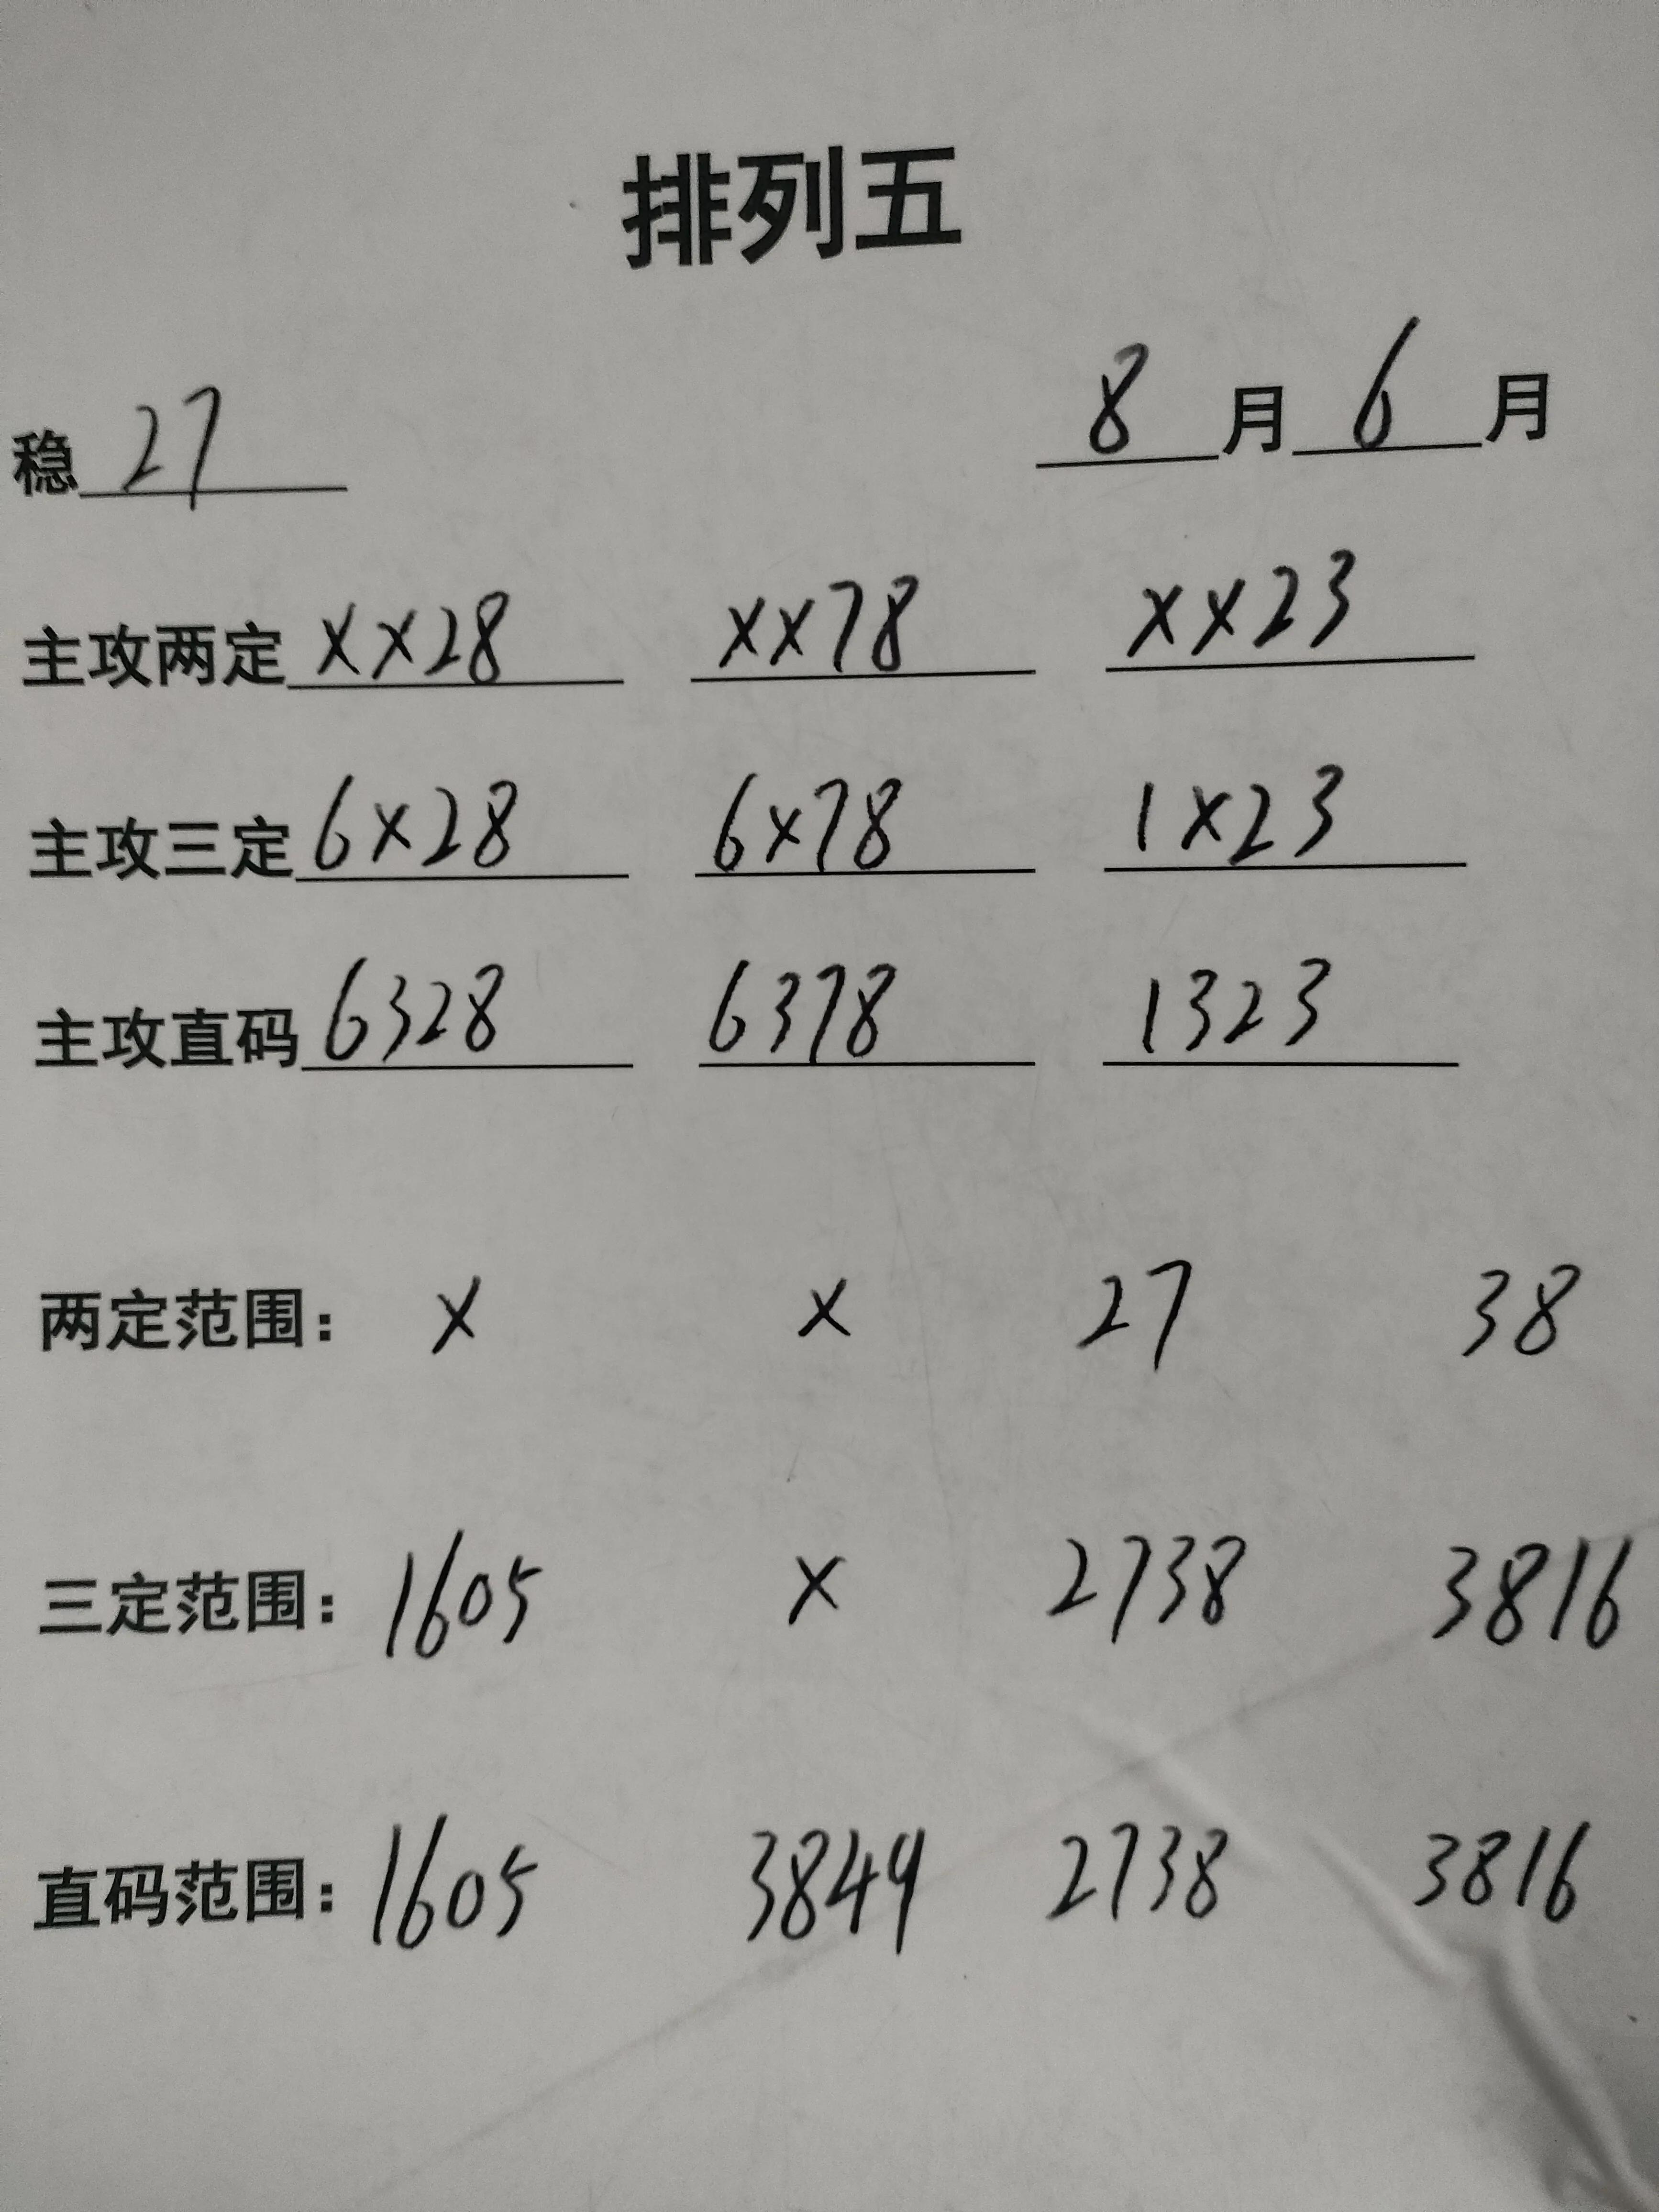 排列五
稳 27 8 月 6 月
主攻两定 XX28 XX78 XX23
主攻三定 6X28 6X78 1X23
主攻直码 6328 6378 1323
两定范围: X X 27 38
三定范围: 1605 X 2738 3816
直码范围: 1605 3849 2738 3816